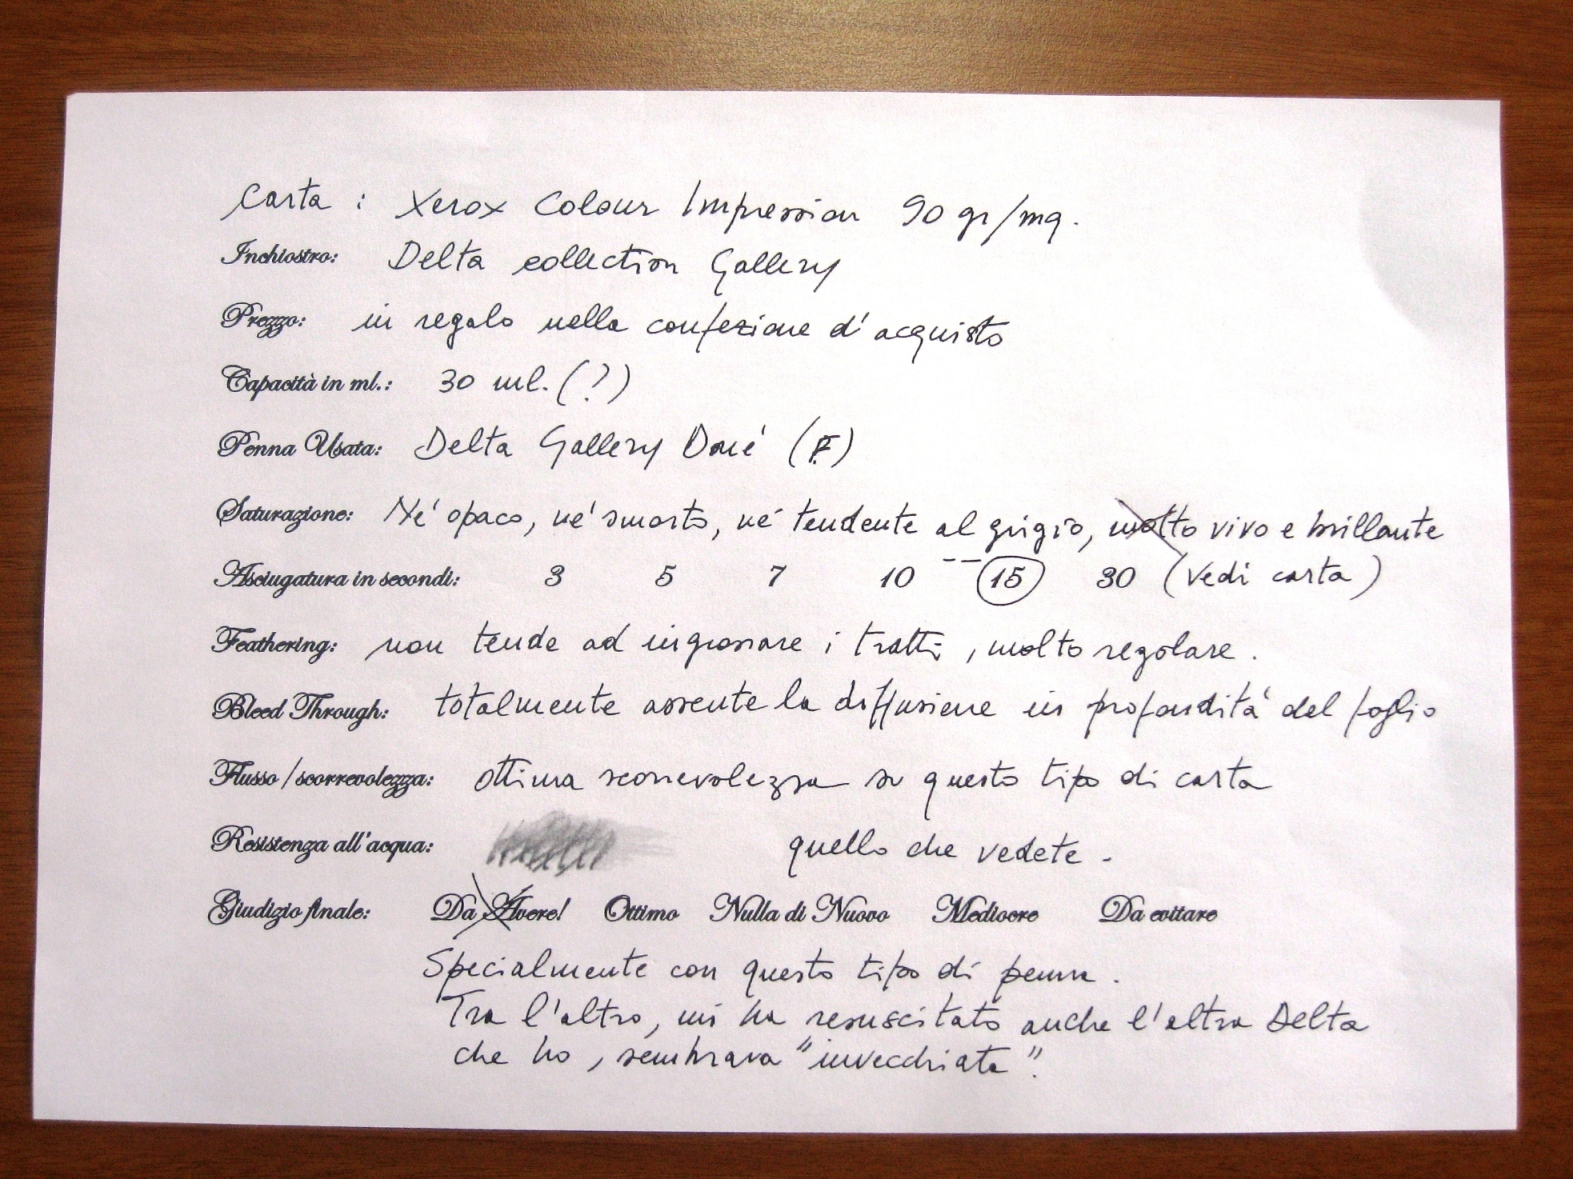 Carta : Xerox Colour Impression 90 gr/mq.
Inchiostro: Delta collection Gallery
Prezzo: in regalo nella confezione d'acquisto
Capacità in ml.: 30 ml. (?)
Penna Usata: Delta Gallery Doué (F)
Saturazione: Né opaco, né smorto, né tendente al grigio, molto vivo e brillante
Asciugatura in secondi: 3 5 7 10 -- 15 30 (vedi carta)
Feathering: non tende ad ingrossare i tratti, molto regolare.
Bleed Through: totalmente assente la diffusione in profondità del foglio
Flusso/scorrevolezza: ottima scorrevolezza su questo tipo di carta
Resistenza all'acqua: quello che vedete.
Giudizio finale: Da Avere! Ottimo Nulla di Nuovo Mediocre Da evitare
Specialmente con questo tipo di penna.
Tra l'altro, mi ha resuscitato anche l'altra Delta
che ho, sembrava "invecchiata".